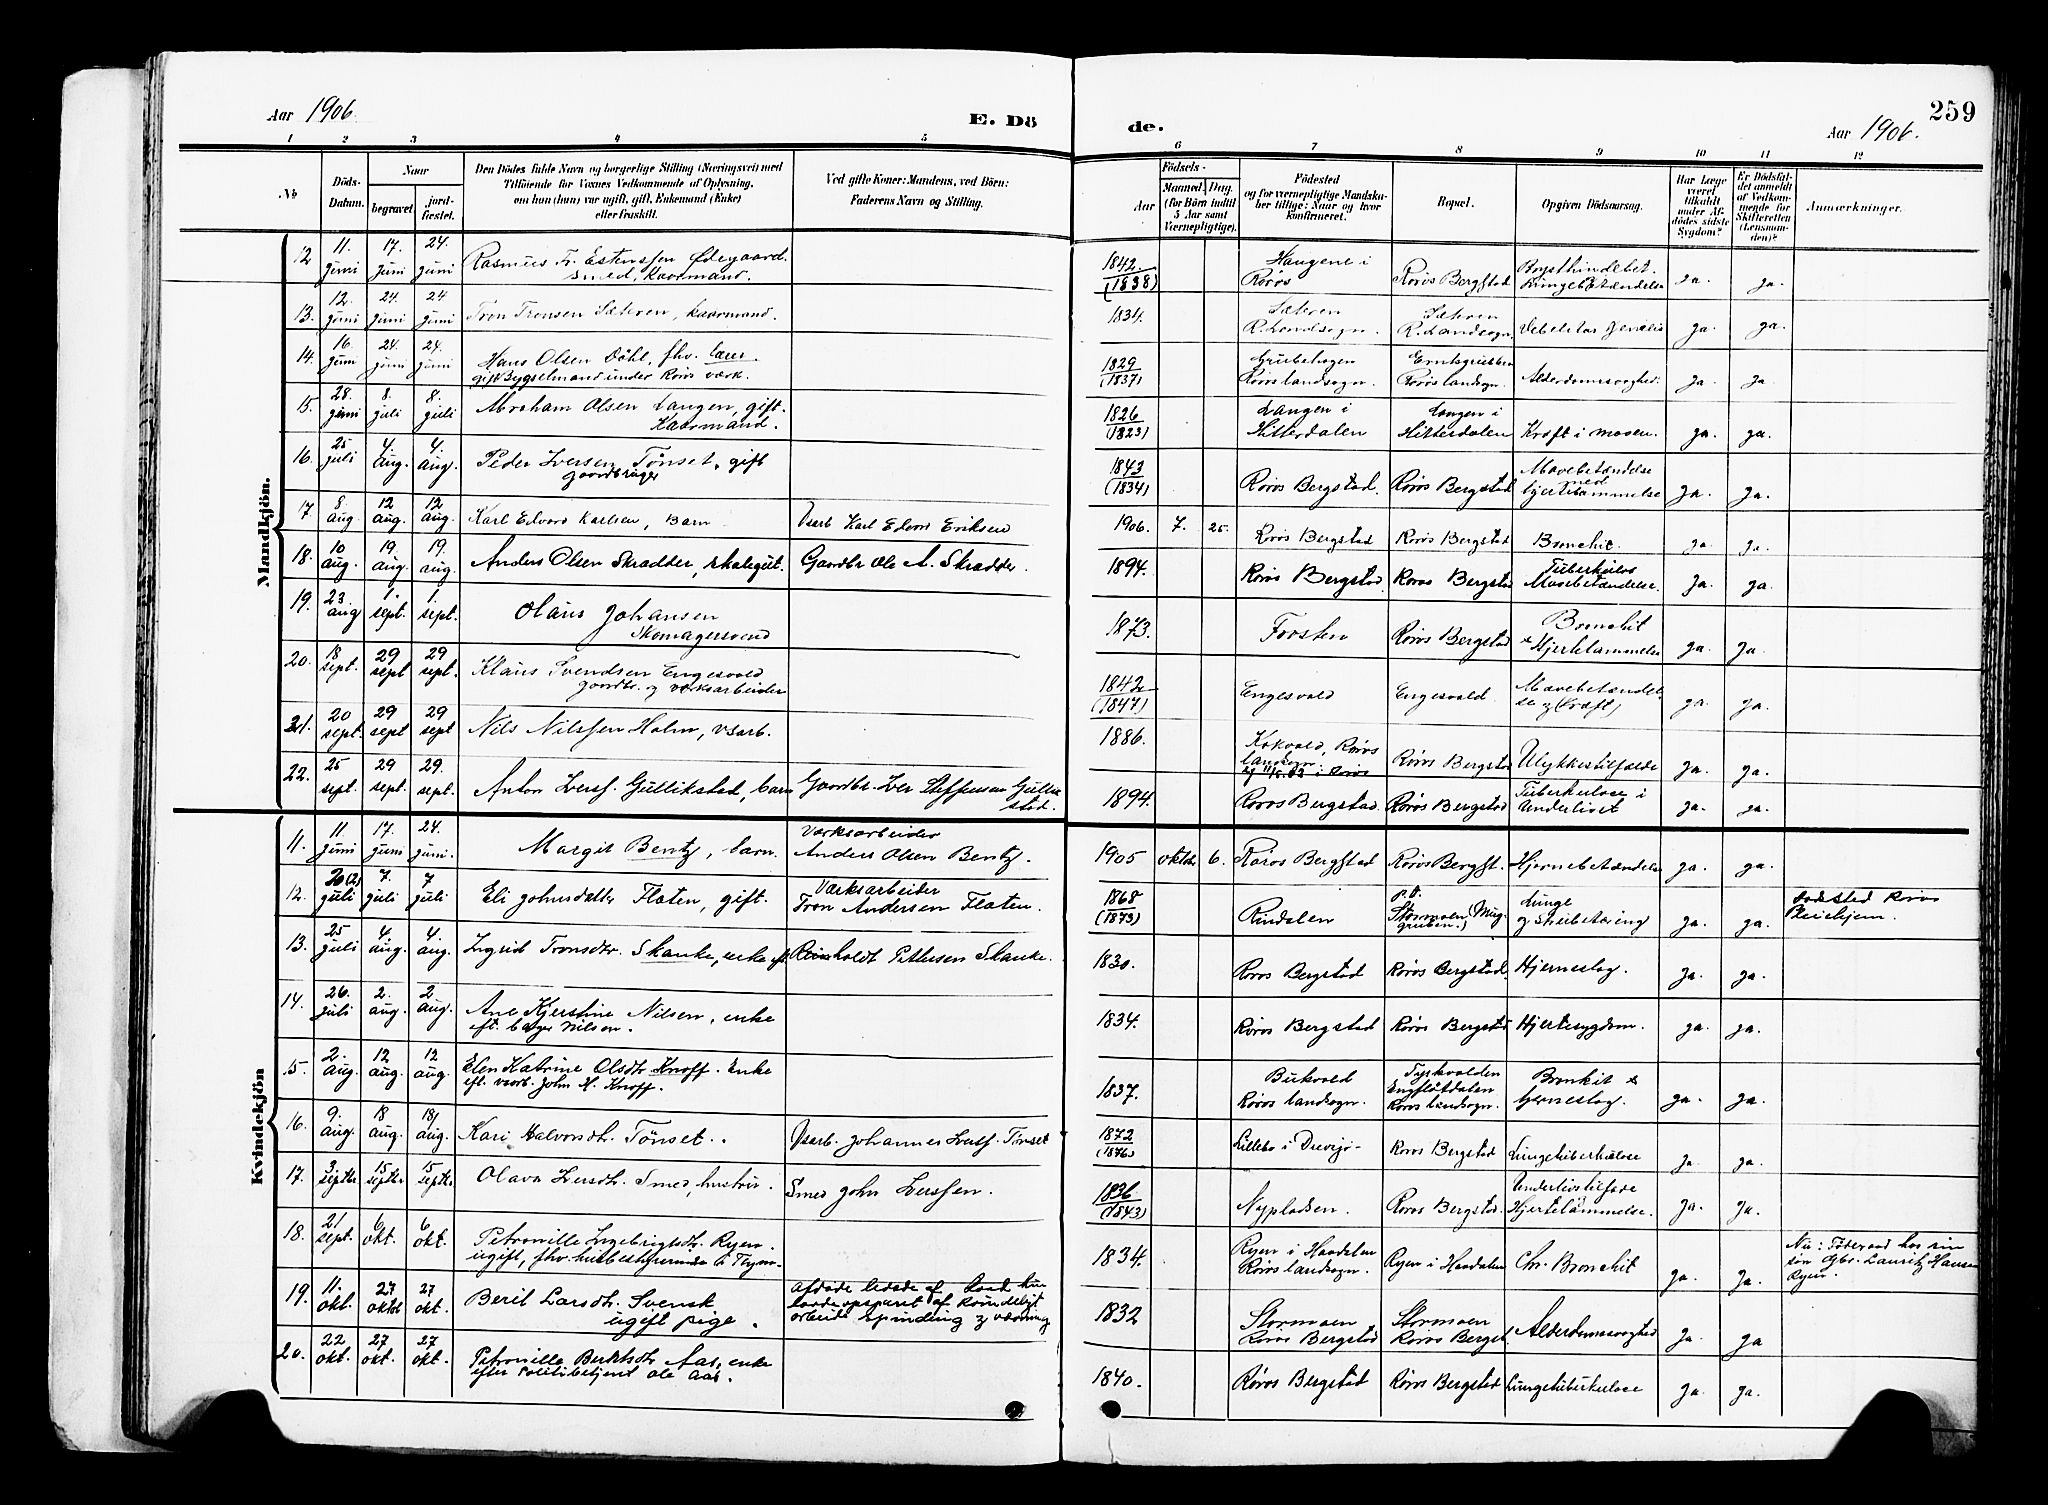 259
Aar 1906. E. Dö de. Aar 1906.
1 2 3 4 5 6 7 8 9 10 11 12
№
Döds-Datum.
Naar
begravet.
jord-fæstet.
Den Dödes fulde Navn og borgerlige Stilling (Næringsvei) med
Tilföiende for Voxnes Vedkommende af Oplysning,
om han (hun) var ugift, gift, Enkemand (Enke)
eller fraskilt.
Ved gifte Koner: Mandens, ved Börn:
Faderens Navn og Stilling.
Födsels-
Aar
Maaned. Dag.
(for Börn indtil
5 Aar samt
Værnepligtige).
Födested
og for værnepligtige Mandska-
ber tillige: Naar og hvor
konfirmeret.
Bopæl.
Opgiven Dödsaarsag.
Har Læge
været
tilkaldt
under Af-
dödes sidste
Sygdom?
Er Dödsfal-
det anmeldt
af Vedkom-
mende for
Skifteretten
(Lensman-
den)?
Anmærkninger.
Mandkjön.
12 11. juni 17 juni 24. juni Rasmus Fr. Estensen Ødegaard. smed, kaarmand. 1842 (1838) Haugene i Røros Røros Bergstad Brysthindebet. Lungebetændelse Ja. ja.
13. 12. juni 24. juni 24 juni Tron Tronsen Sæteren, kaarmand. 1834. Sæteren R. Landsogn. Sæteren R. Landsogn. ja. ja.
14. 16. juni 24. juni 24. juni Hans Olsen Dahl, fhv. lærer. gift Bygselmand under Røros værk. 1829 (1837) Grubehogen Røros landsogn. Røros landsogn. Alderdomssvaghed. ja. ja.
15. 28. juni 8. juli 8. juli Abraham Olsen Langen, gift. Kaarmand. 1826 (1823) Langen i Hitterdalen Langen i Hitterdalen Kræft i maven. ja. ja.
16. 25 juli 4. aug. 4. aug. Peder Iversen Tønset, gift gaardbruger 1843 (1834) Røros Bergstad. Røros Bergstad Mavebetændelse med hjertelammelse ja. ja.
17. 8. aug. 12 aug. 12 aug. Karl Edvard Karlsen, Barn Vsarb. Karl Edvard Eriksen 1906. 7. 25. Røros Bergstad Røros Bergstad Bronchit. ja. ja.
18. 10 aug. 19. aug. 19. aug. Anders Olsen Skradder, skolegut. Gaardbr Ole A. Skradder. 1894. Røros Bergstad. Røros Bergstad Tuberkuløs Mavebetændelse. ja. ja.
19. 23 aug 1. sept. 1. sept. Olaus Johansen Skomagersvend 1873. Røros Bergstad Bronchit & Hjertelammelse ja. ja.
20. 18 sept. 29 sept 29 sept. Klaus Svendsen Engesvold gaardbr. og værksarbeider 1842 (1847) Engesvold Engesvold Mavebetændelse (Kræft) ja. ja.
21. 20 sept. 29 sept 29 sept Nils Nilssen Holm, vsarb. 1886. Kokvold, Røros landsogn. Røros Bergstad Ulykkestilfælde ja. ja.
22. 25 sept. 29 sept. 29. sept. Anton Iverss. Gullikstad, barn Gaardbr. Iver Steffensen Gullikstad. 1894. Røros Bergstad. Røros Bergstad Tuberkulose i Underlivet ja. ja.
Kvindekjön
11. 11. juni 17. juni 24. juni. Margit Bentz, barn. Værksarbeider Anders Olsen Bentz. 1905 oktbr. 6. Røros Bergstad Røros Bergst. Hjernebetændelse ja. ja.
12. 20(2) juli 7. juli 7 juli Eli Johnsdatter Flaten, gift. Værksarbeider Tron Andersen Flaten. 1868 (1873) Rindalen p.t. Stormoen (Mug-gruben.) Lunge og strubetæring ja. ja. Dødssted Røros Pleiehjem.
13. 25 juli 4. aug. 4. aug. Ingrid Tronsdtr. Skanke, enke eft. Reinholdt Pettersen Skanke. 1830. Røros Bergstad Røros Bergstad. Hjerneslag. ja. ja.
14. 26. juli 2. aug. 2 aug. Ane Kjerstine Nilsen, enke eft. bager Nilsen. 1834. Røros Bergstad Røros Bergstad Hjertesygdom. ja. ja.
15. 2. aug. 12 aug. 12 aug. Elen Katrine Olsdtr Knoff. Enke eft. vsarb. John H. Knoff. 1837. Røros landsogn. Tyskvolden Røros landsogn. Bronkit & hjerneslag. ja. ja.
16. 9. aug. 18 aug. 18 aug. Kari Halvorsdtr. Tønset. Vsarb. Johannes Iverss. Tønset 1872 (1876) Lillebo i Drevsjø Røros Bergstad Lungetuberkulose ja. ja.
17. 3 septbr 15 septbr 15 septbr Olava Iversdtr. Smed, hustru. Smed John Iverssen. 1836 (1843) Nypladsen. Røros Bergstad. Underlivstilfælde Hjertelammelse. ja. ja.
18. 21 sept. 6 okt. 6 okt. Petronille Ingebrigtsdtr. Ryen. ugift, fhv. husbestyrerinde 1834. Ryen i Haadalen Røros landsogn. Ryen i Haadalen Chr. Bronchit ja. ja. Nu: Føderaad hos sin søn Gbr. Lauritz Hansen Ryen.
19. 11. okt. 27 oktbr 27 okt. Berit Larsdtr. Svensk ugift pige. Afdøde levede af hvad hun havde opsparet af kvindeligt arbeide spinding og vævning 1832 Stormoen Røros Bergstad Stormoen Røros Bergst. Alderdomssvaghed ja. ja
20. 22 okt. 27 okt. 27 okt. Petronille Berntsdtr Aas, enke efter Politibetjent Ole Aas. 1840. Røros Bergstad Røros Bergstad Lungetuberkulose ja. ja.